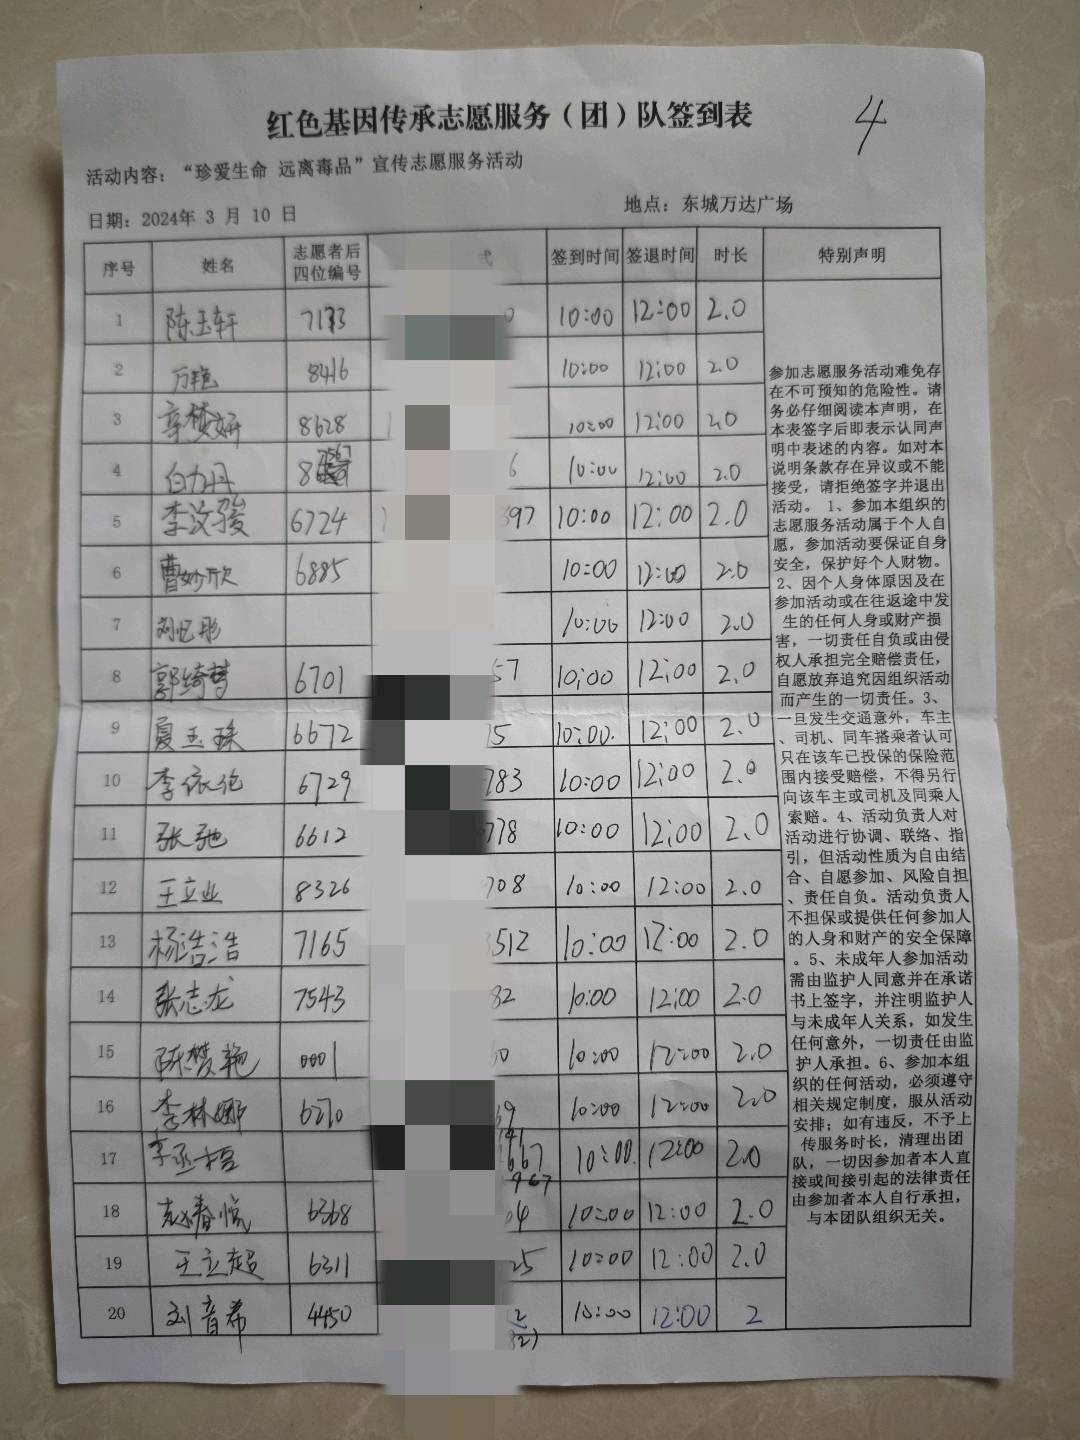 4
红色基因传承志愿服务（团）队签到表
活动内容：“珍爱生命 远离毒品”宣传志愿服务活动
日期：2024年 3 月 10 日
地点：东城万达广场
序号 姓名 志愿者后四位编号 式 签到时间 签退时间 时长 特别声明
1 陈玉轩 7173 0 10:00 12:00 2.0
2 万艳 8416 10:00 12:00 2.0
3 辛梦妍 8628 10:00 12:00 2.0
4 白力丹 6 10:00 12:00 2.0
5 李汶骏 6724 397 10:00 12:00 2.0
6 曹妙欣 6885 10:00 12:00 2.0
7 刘忆彤 10:00 12:00 2.0
8 郭绮梦 6701 57 10:00 12:00 2.0
9 夏玉珠 6672 75 10:00. 12:00 2.0
10 李依伦 6729 783 10:00 12:00 2.0
11 张弛 6612 778 10:00 12:00 2.0
12 王立业 8326 708 10:00 12:00 2.0
13 杨浩浩 7165 3512 10:00 12:00 2.0
14 张志龙 7543 82 10:00 12:00 2.0
15 陈梦艳 0001 60 10:00 12:00 2.0
16 李林娜 6270 69 10:00 12:00 2.0
17 李丞梧 667 967 10:00. 12:00 2.0
18 春悦 6368 04 10:00 12:00 2.0
19 王立超 6311 25 10:00 12:00 2.0
20 刘音希 4450 2 82) 10:00 12:00 2
参加志愿服务活动难免存
在不可预知的危险性。请
务必仔细阅读本声明，在
本表签字后即表示认同声
明中表述的内容。如对本
说明条款存在异议或不能
接受，请拒绝签字并退出
活动。 1、参加本组织的
志愿服务活动属于个人自
愿，参加活动要保证自身
安全，保护好个人财物。
2、因个人身体原因及在
参加活动或在往返途中发
生的任何人身或财产损
害，一切责任自负或由侵
权人承担完全赔偿责任，
自愿放弃追究因组织活动
而产生的一切责任。3、
一旦发生交通意外，车主
、司机、同车搭乘者认可
只在该车已投保的保险范
围内接受赔偿，不得另行
向该车主或司机及同乘人
索赔。4、活动负责人对
活动进行协调、联络、指
引，但活动性质为自由结
合、自愿参加、风险自担
、责任自负。活动负责人
不担保或提供任何参加人
的人身和财产的安全保障
。5、未成年人参加活动
需由监护人同意并在承诺
书上签字，并注明监护人
与未成年人关系，如发生
任何意外，一切责任由监
护人承担。6、参加本组
织的任何活动，必须遵守
相关规定制度，服从活动
安排；如有违反，不予上
传服务时长，清理出团
队，一切因参加者本人直
接或间接引起的法律责任
由参加者本人自行承担，
与本团队组织无关。